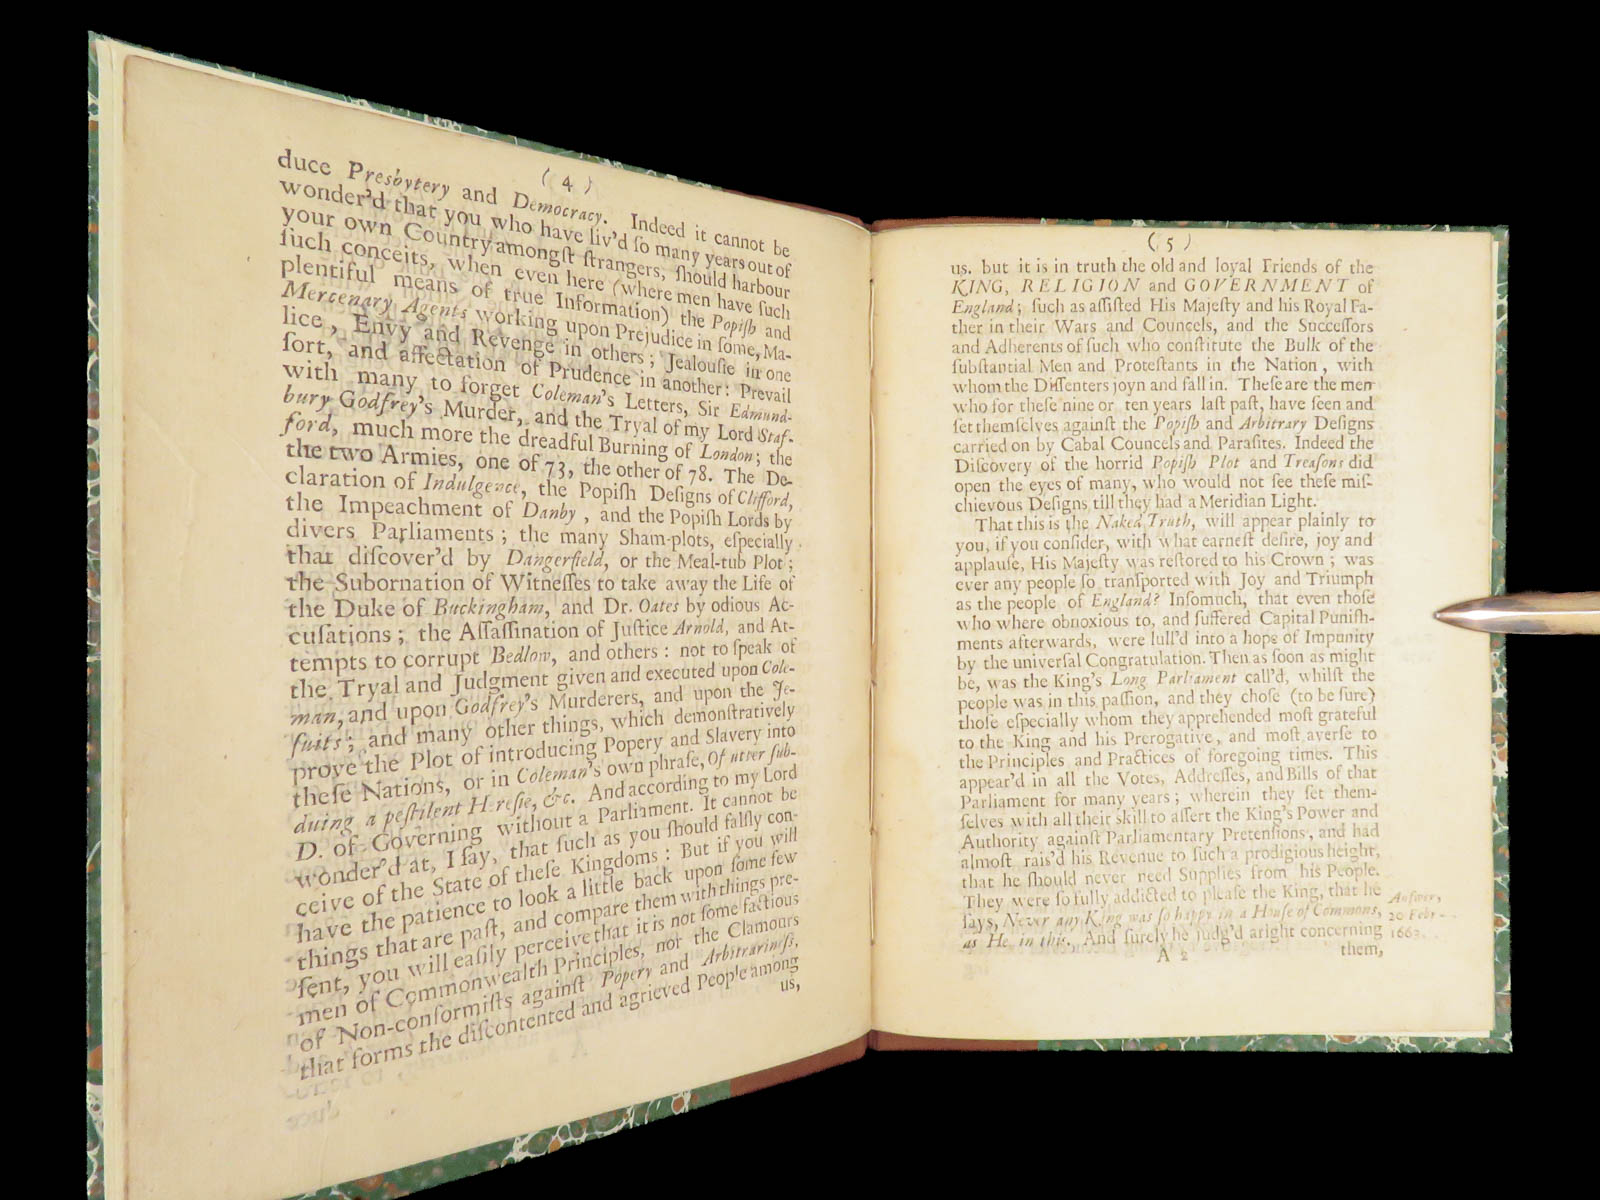 ( 4 )
duce Presbytery and Democracy. Indeed it cannot be
wonder'd that you who have liv'd ſo many years out of
your own Country amongſt ſtrangers, ſhould harbour
ſuch conceits, when even here (where men have ſuch
plentiful means of true Information) the Popiſh and
Mercenary Agents working upon Prejudice in ſome, Ma-
lice, Envy and Revenge in others; Jealouſie in one
ſort, and affectation of Prudence in another: Prevail
with many to forget Coleman's Letters, Sir Edmund-
bury Godfrey's Murder, and the Tryal of my Lord Staf-
ford, much more the dreadful Burning of London; the
the two Armies, one of 73, the other of 78. The De-
claration of Indulgence, the Popiſh Deſigns of Clifford,
the Impeachment of Danby, and the Popiſh Lords by
divers Parliaments; the many Sham-plots, eſpecially
that diſcover'd by Dangerfield, or the Meal-tub Plot;
the Subornation of Witneſſes to take away the Life of
the Duke of Buckingham, and Dr. Oates by odious Ac-
cuſations; the Aſſaſſination of Juſtice Arnold, and At-
tempts to corrupt Bedlow, and others: not to ſpeak of
the Tryal and Judgment given and executed upon Cole-
man, and upon Godfrey's Murderers, and upon the Je-
ſuits; and many other things, which demonſtratively
prove the Plot of introducing Popery and Slavery into
theſe Nations, or in Coleman's own phraſe, Of utter ſub-
duing a peſtilent H reſie, &c. And according to my Lord
D. of Governing without a Parliament. It cannot be
wonder'd at, I ſay, that ſuch as you ſhould falſly con-
ceive of the State of theſe Kingdoms: But if you will
have the patience to look a little back upon ſome few
things that are paſt, and compare them with things pre-
ſent, you will eaſily perceive that it is not ſome factious
men of Commonwealth Principles, nor the Clamours
of Non-conformiſts againſt Popery and Arbitrarineſs,
that forms the diſcontented and agrieved People among
us,
( 5 )
us. but it is in truth the old and loyal Friends of the
KING, RELIGION and GOVERNMENT of
England; ſuch as aſſiſted His Majeſty and his Royal Fa-
ther in their Wars and Councels, and the Succeſſors
and Adherents of ſuch who conſtitute the Bulk of the
ſubſtantial Men and Proteſtants in the Nation, with
whom the Diſſenters joyn and fall in. Theſe are the men
who for theſe nine or ten years laſt paſt, have ſeen and
ſet themſelves againſt the Popiſh and Arbitrary Deſigns
carried on by Cabal Councels and Paraſites. Indeed the
Diſcovery of the horrid Popiſh Plot and Treaſons did
open the eyes of many, who would not ſee theſe miſ-
chievous Deſigns till they had a Meridian Light.
That this is the Naked Truth, will appear plainly to
you, if you conſider, with what earneſt deſire, joy and
applauſe, His Majeſty was reſtored to his Crown; was
ever any people ſo tranſported with Joy and Triumph
as the people of England? Inſomuch, that even thoſe
who where obnoxious to, and ſuffered Capital Puniſh-
ments afterwards, were lull'd into a hope of Impunity
by the univerſal Congratulation. Then as ſoon as might
be, was the King's Long Parliament call'd, whilſt the
people was in this paſſion, and they choſe (to be ſure)
thoſe eſpecially whom they apprehended moſt grateful
to the King and his Prerogative, and moſt averſe to
the Principles and Practices of foregoing times. This
appear'd in all the Votes, Addreſſes, and Bills of that
Parliament for many years; wherein they ſet them-
ſelves with all their skill to aſſert the King's Power and
Authority againſt Parliamentary Pretenſions, and had
almoſt rais'd his Revenue to ſuch a prodigious height,
that he ſhould never need Supplies from his People.
They were ſo fully addicted to pleaſe the King, that he
ſays, Never any King was ſo happy in a Houſe of Commons,
as He in this. And ſurely he judg'd aright concerning
Anſwer,
20 Febr
1663.
A 2 them,